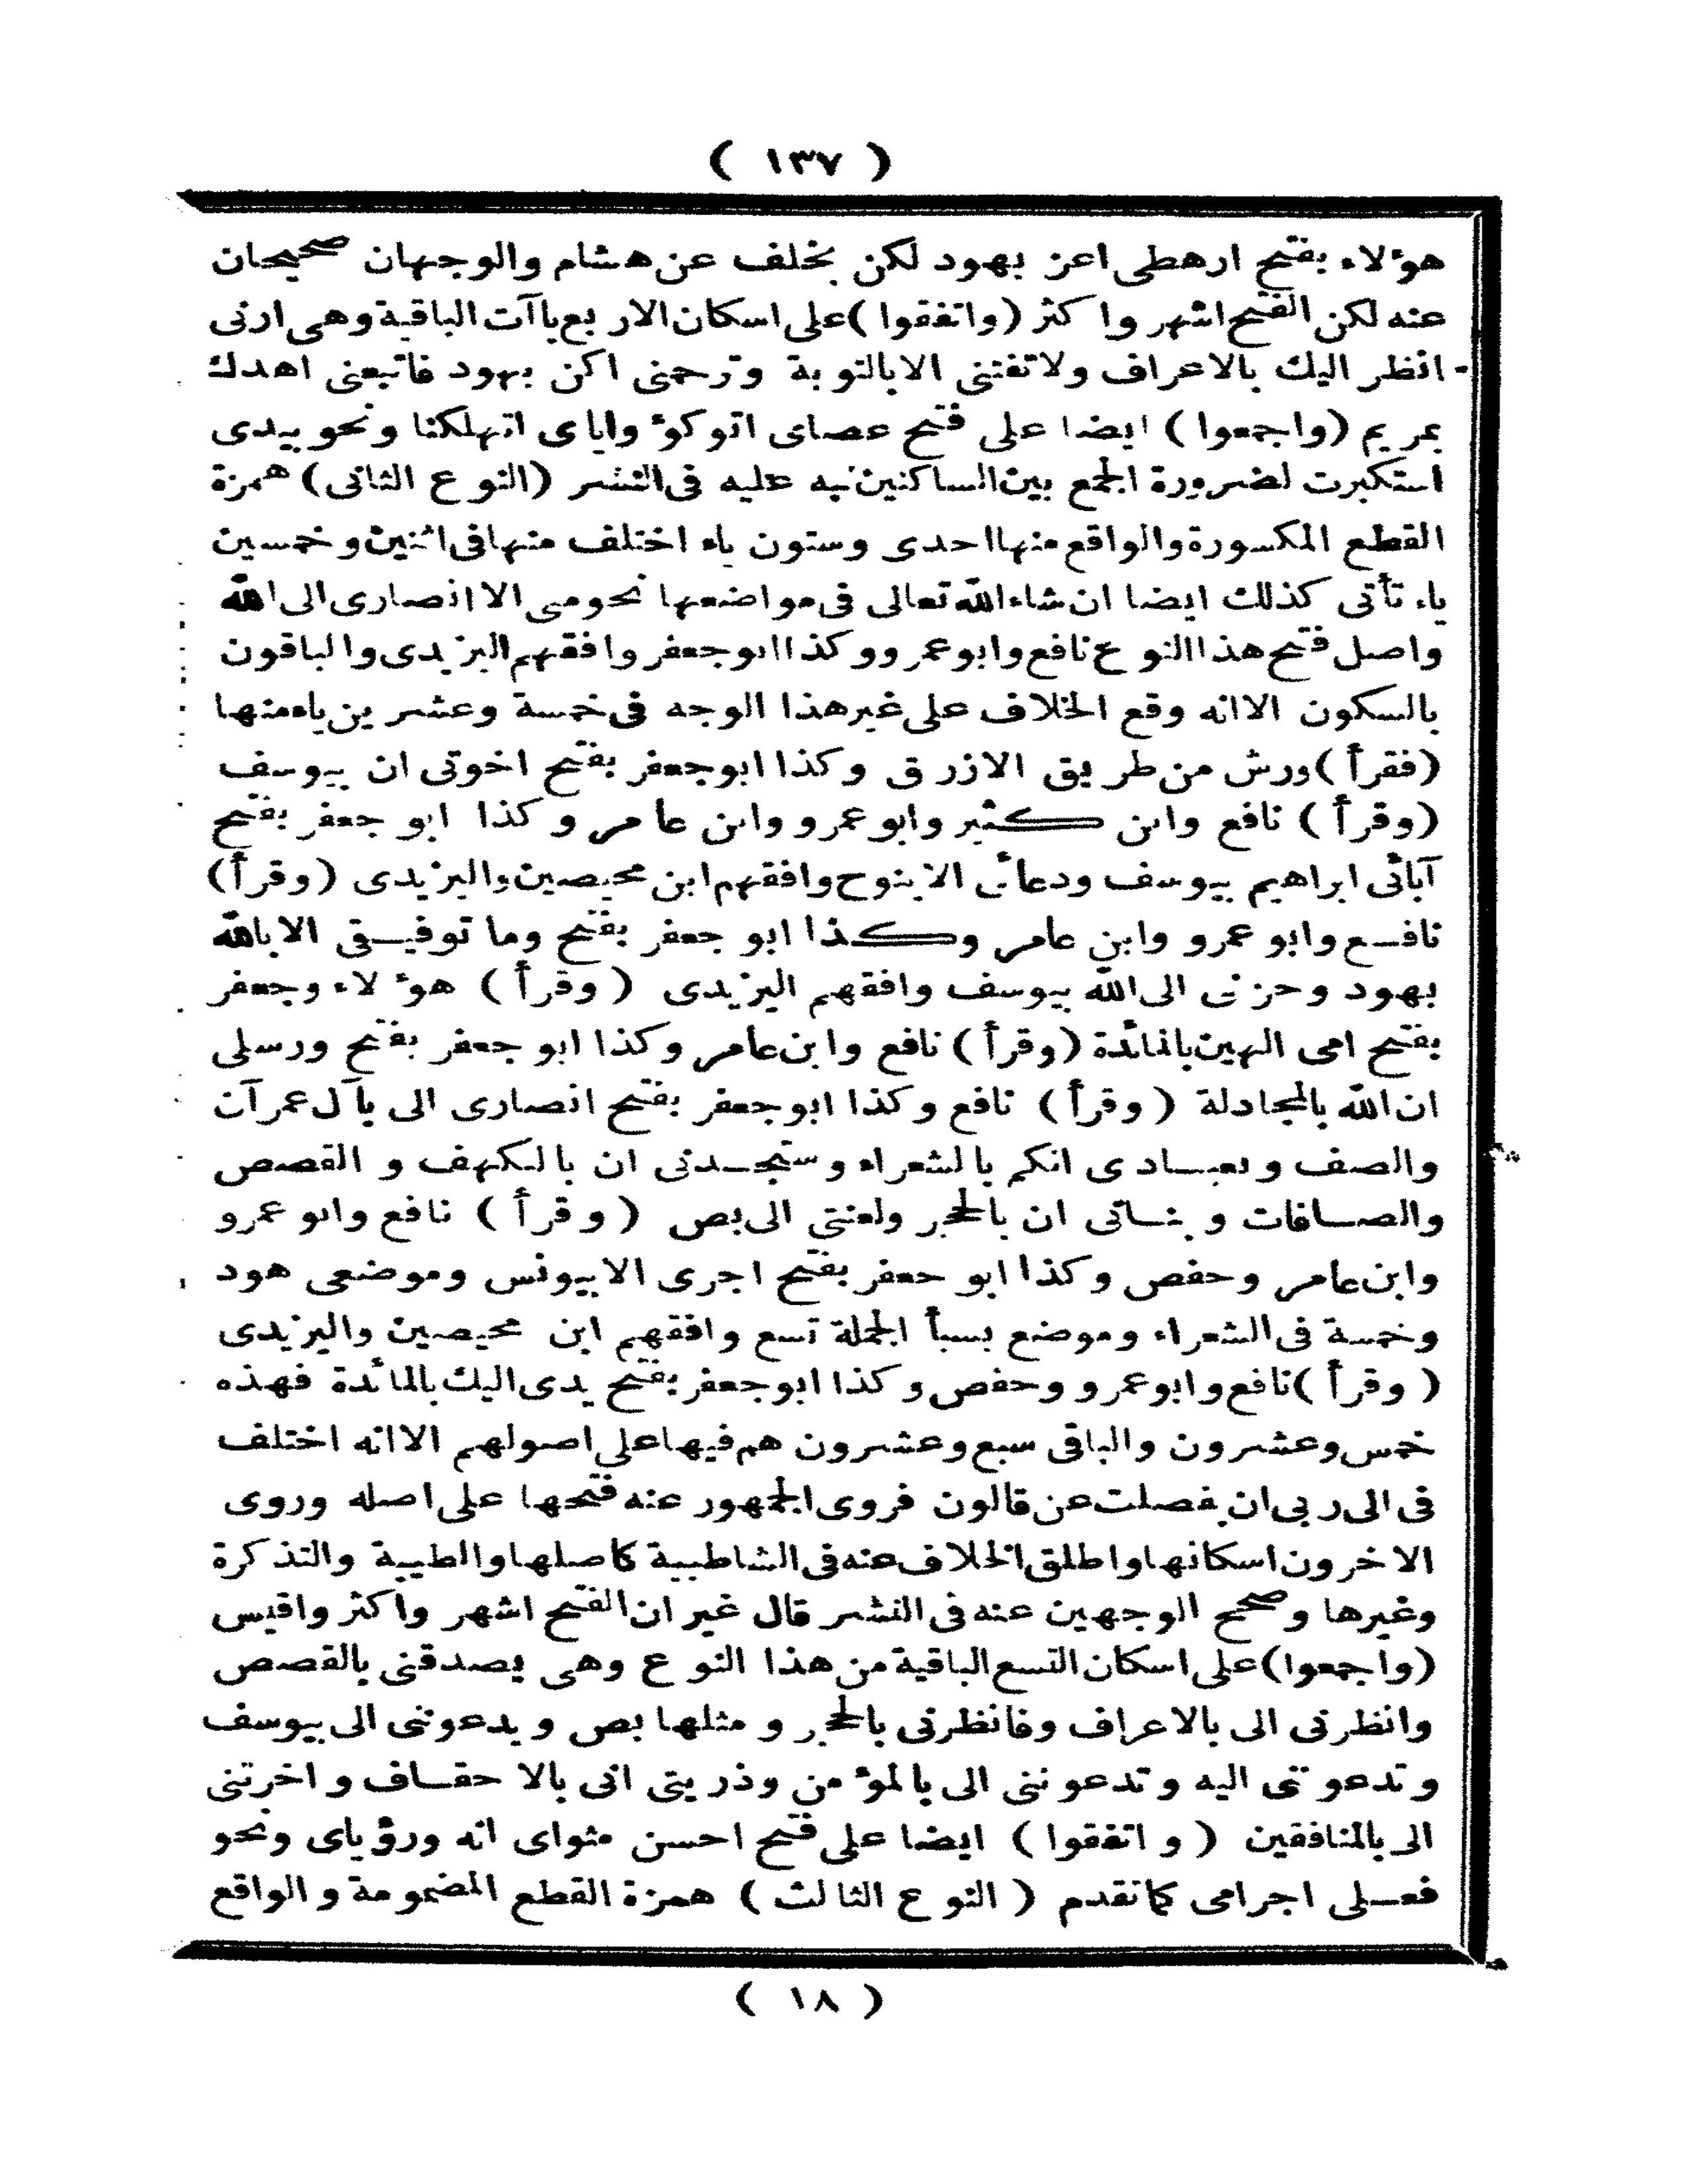 ( ١٣٧ )
هؤلاء بفتح ارهطى اعز بهود لكن بخلف عن هشام والوجهان صحيحان
عنه لكن الفتح اشهر واكثر (واتفقوا) على اسكان الاربع ياآت الباقية وهى ارنى
انظر اليك بالاعراف ولاتفتنى الابالتوبة وترحمنى اكن بهود فاتبعنى اهدك
بمريم (واجمعوا) ايضا على فتح عصاى اتوكؤ واياى اتهلكنا ونحو بيدى
استكبرت لضرورة الجمع بين الساكنين نبه عليه فى النشر (النوع الثانى) همزة
القطع المكسورة والواقع منها احدى وستون ياء اختلف منها فى اثنين وخمسين
ياء تأتى كذلك ايضا ان شاء الله تعالى فى مواضعها نحو منى الا انصارى الى الله
واصل فتح هذا النوع نافع وابوعمرو وكذا ابوجعفر وافقهم اليزيدى والباقون
بالسكون الاانه وقع الخلاف على غير هذا الوجه فى خمسة وعشرين ياء منها
(فقرأ) ورش من طريق الازرق وكذا ابوجعفر بفتح اخوتى ان بيوسف
(وقرأ) نافع وابن كثير وابوعمرو وابن عامر وكذا ابو جعفر بفتح
آبائى ابراهيم بيوسف ودعائى الا بنوح وافقهم ابن محيصين واليزيدى (وقرأ)
نافع وابو عمرو وابن عامر وكذا ابو جعفر بفتح وما توفيقى الا بالله
بهود وحزنى الى الله بيوسف وافقهم اليزيدى (وقرأ) هؤلاء وجعفر
بفتح امى الهين بالمائدة (وقرأ) نافع وابن عامر وكذا ابو جعفر بفتح ورسلى
ان الله بالمجادلة (وقرأ) نافع وكذا ابوجعفر بفتح انصارى الى بآل عمرآن
والصف وبعبادى انكم بالشعراء وستجدنى ان بالكهف والقصص
والصافات وبناتى ان بالحجر ولعنتى الى بص (وقرأ) نافع وابو عمرو
وابن عامر وحفص وكذا ابو جعفر بفتح اجرى الا بيونس وموضعى هود
وخمسة فى الشعراء وموضع بسبأ الجملة تسع وافقهم ابن محيصين واليزيدى
(وقرأ) نافع وابوعمرو وحفص وكذا ابوجعفر بفتح يدى اليك بالمائدة فهذه
خمس وعشرون والباقى سبع وعشرون هم فيها على اصولهم الاانه اختلف
فى الى ربى ان بفصلت عن قالون فروى الجمهور عنه فتحها على اصله وروى
الاخرون اسكانها واطلق الخلاف عنه فى الشاطبية كاصلها والطيبة والتذكرة
وغيرها وصحح الوجهين عنه فى النشر قال غير ان الفتح اشهر واكثر واقيس
(واجمعوا) على اسكان التسع الباقية من هذا النوع وهى يصدقنى بالقصص
وانظرنى الى بالاعراف وفانظرنى بالحجر ومثلها بص ويدعوننى الى بيوسف
وتدعوننى اليه وتدعوننى الى بالمؤمن وذريتى انى بالاحقاف واخرتنى
الى بالمنافقين (واتفقوا) ايضا على فتح احسن مثواى انه ورؤياى ونحو
فعلى اجرامى كما تقدم (النوع الثالث) همزة القطع المضمومة والواقع
( ١٨ )